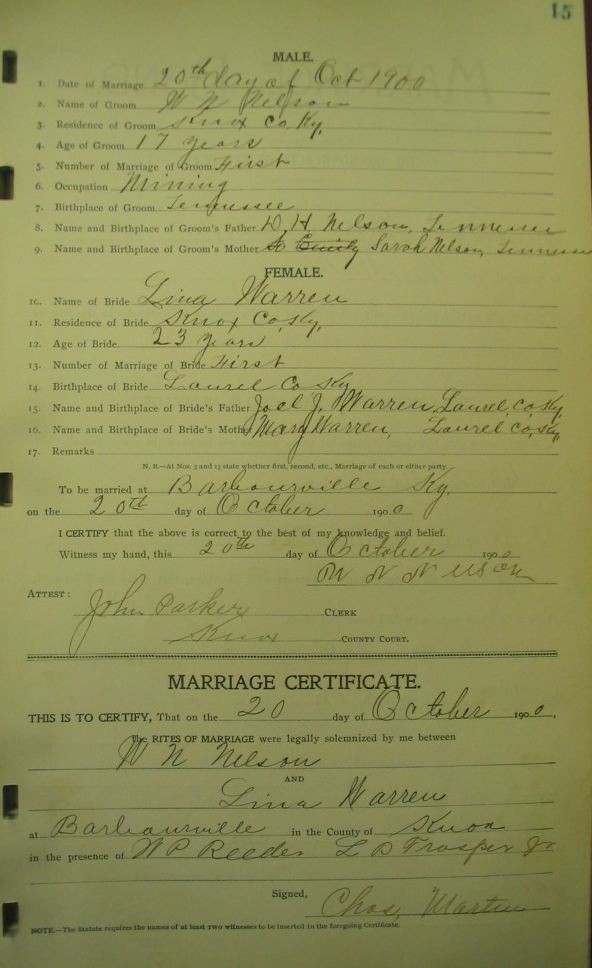 15
MALE.
1. Date of Marriage 20th day of Oct 1900
2. Name of Groom W N Nelson
3. Residence of Groom Knox Co Ky,
4. Age of Groom 17 years
5. Number of Marriage of Groom First
6. Occupation Mining
7. Birthplace of Groom Tennessee
8. Name and Birthplace of Groom's Father W. H. Nelson, Tennessee
9. Name and Birthplace of Groom's Mother Sarah Nelson, Tennessee
FEMALE.
10. Name of Bride Lina Warren
11. Residence of Bride Knox Co, Ky,
12. Age of Bride 23 years
13. Number of Marriage of Bride First
14. Birthplace of Bride Laurel Co Ky
15. Name and Birthplace of Bride's Father Joel J. Warren, Laurel, Co, Ky,
16. Name and Birthplace of Bride's Mother Mary Warren, Laurel Co, Ky,
17. Remarks
N. B.—At Nos. 5 and 13 state whether first, second, etc., Marriage of each or either party.
To be married at Barbourville Ky.
on the 20th day of October 1900
I CERTIFY that the above is correct to the best of my knowledge and belief.
Witness my hand, this 20th day of October 1900
W N Nelson
ATTEST:
John Parker CLERK
Knox COUNTY COURT.
MARRIAGE CERTIFICATE.
THIS IS TO CERTIFY, That on the 20 day of October 1900,
the RITES OF MARRIAGE were legally solemnized by me between
W N Nelson
AND
Lina Warren
at Barbourville in the County of Knox
in the presence of W P Reeder L D Trosper Jr
Signed,
Chas, Martin
NOTE.—The Statute requires the names of at least two witnesses to be inserted in the foregoing Certificate.